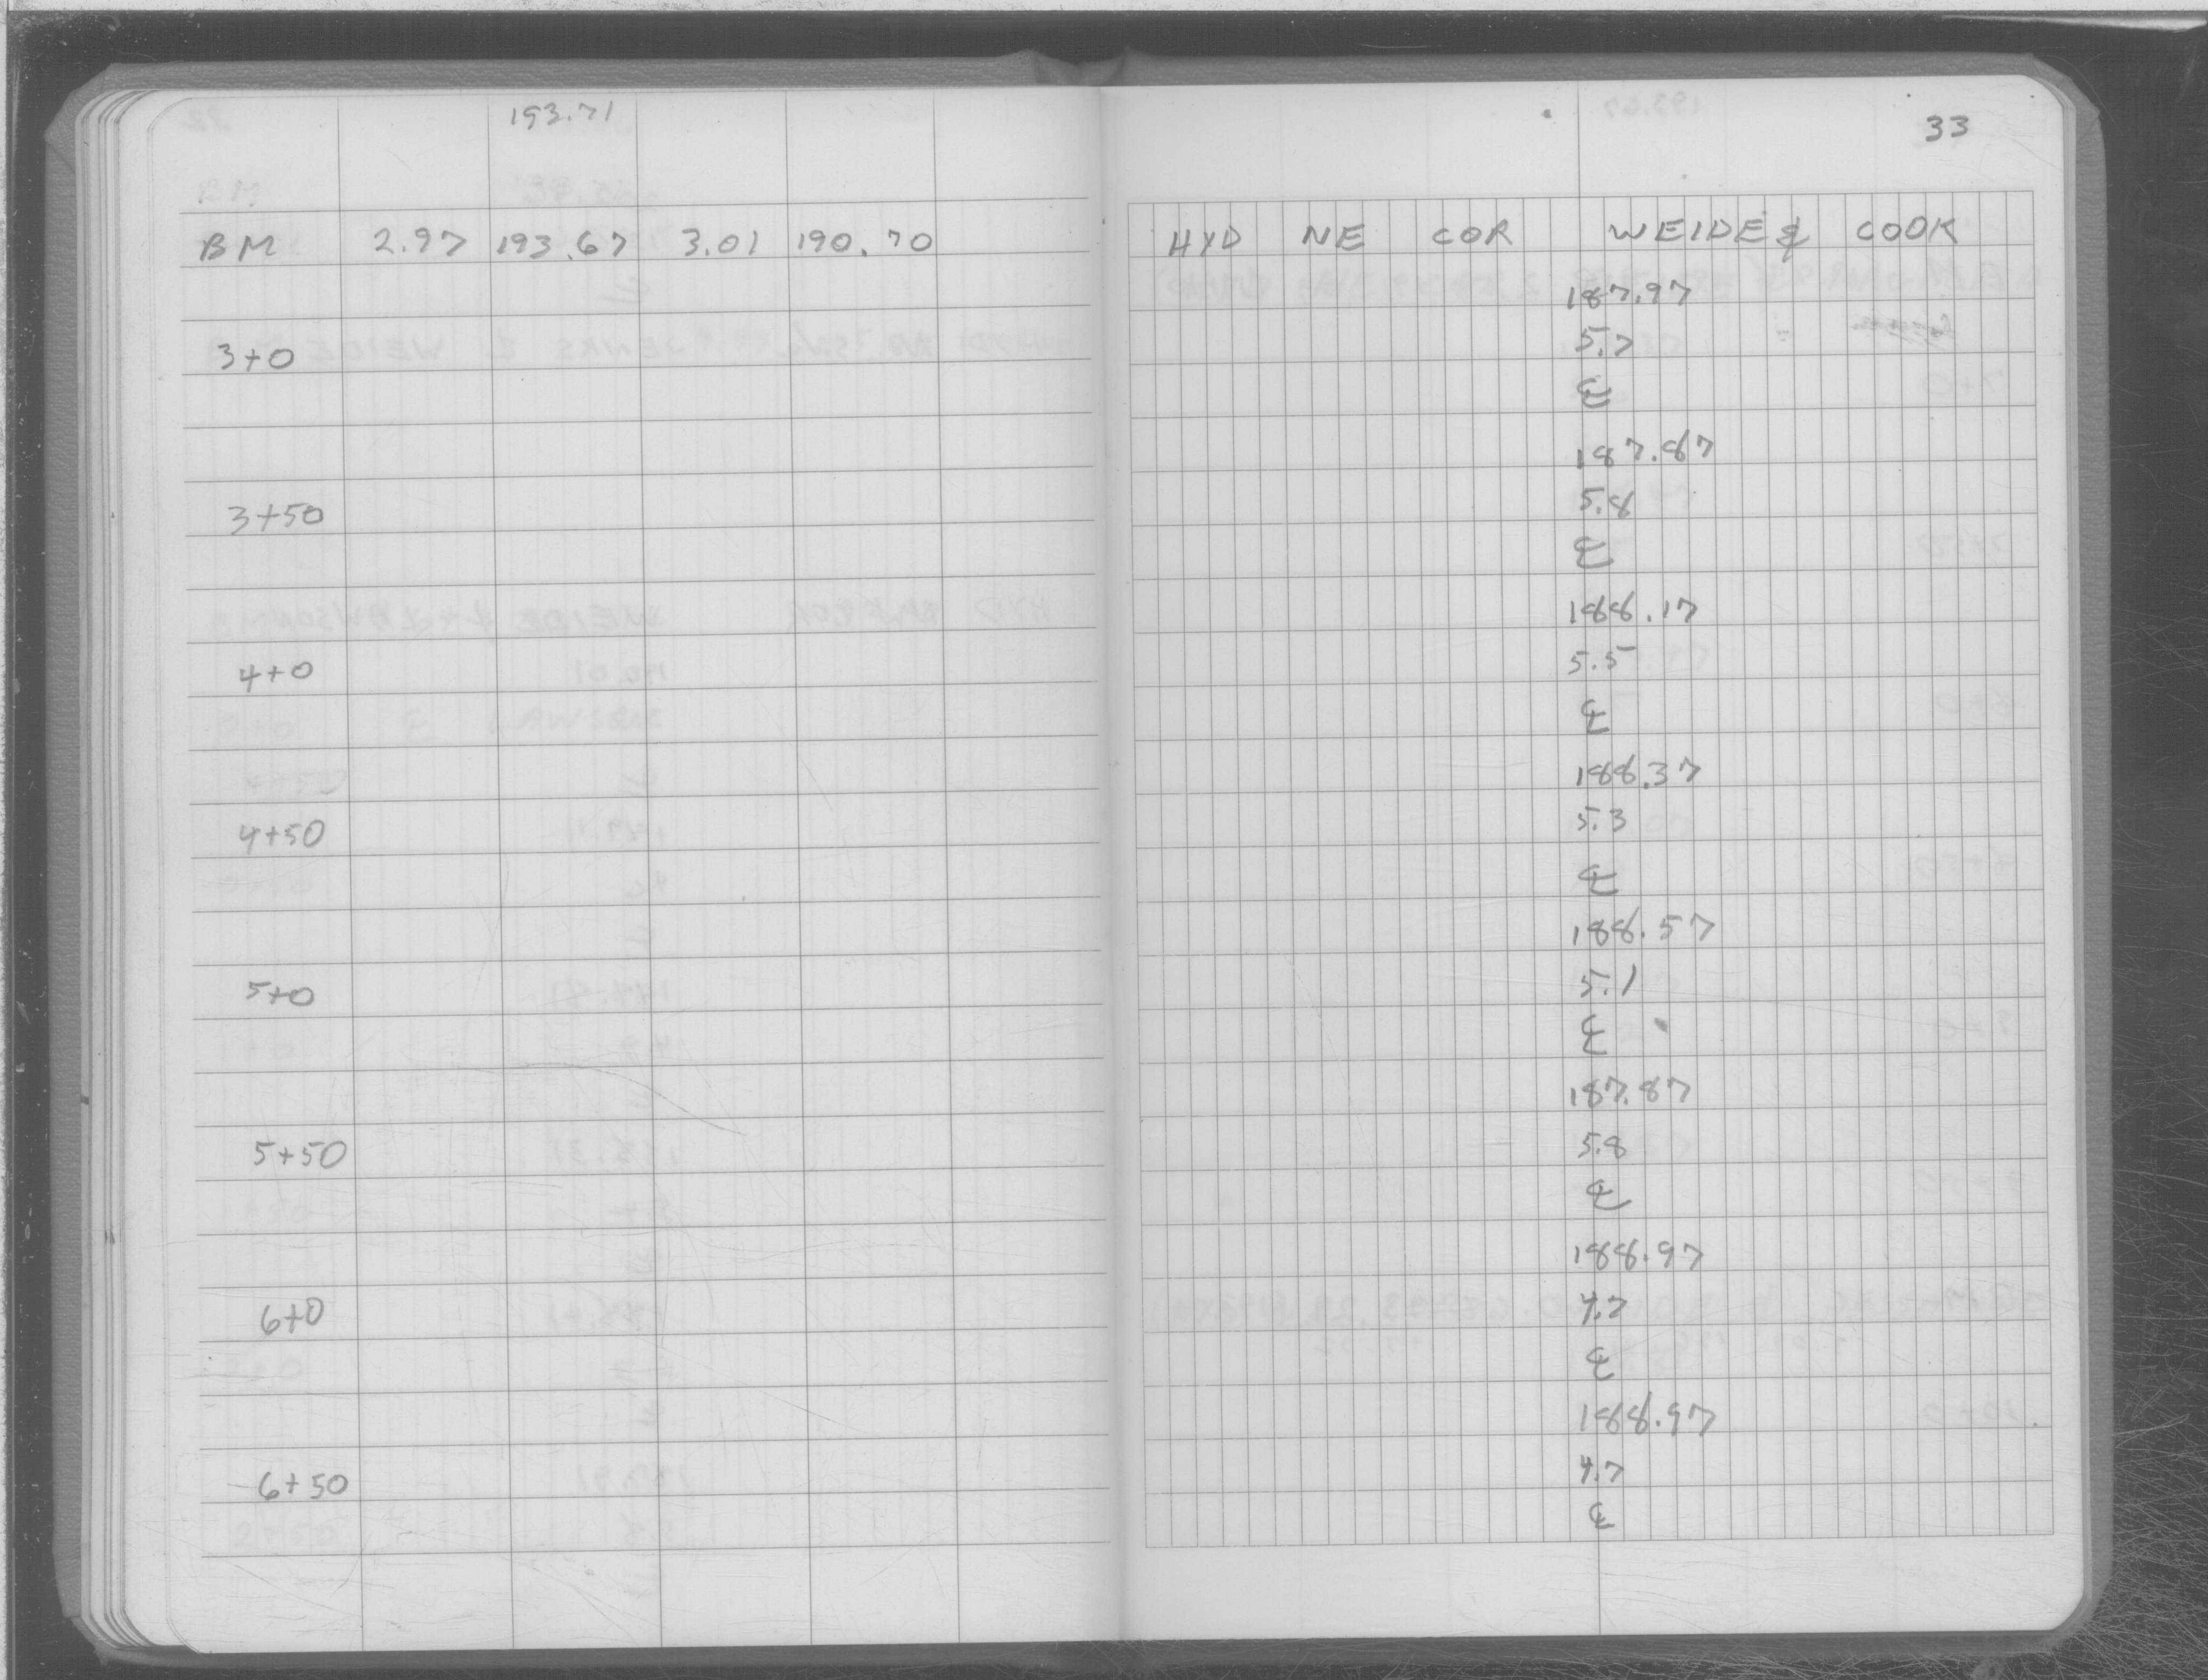 193.71
33
BM 2.97 193.67 3.01 190.70 HYD NE COR WEIDE & COOK
187.97
3+0 5.7
℄
187.87
3+50 5.8
℄
188.17
4+0 5.5
℄
188.37
4+50 5.3
℄
188.57
5+0 5.1
℄
187.87
5+50 5.8
℄
188.97
6+0 4.7
℄
188.97
6+50 4.7
℄